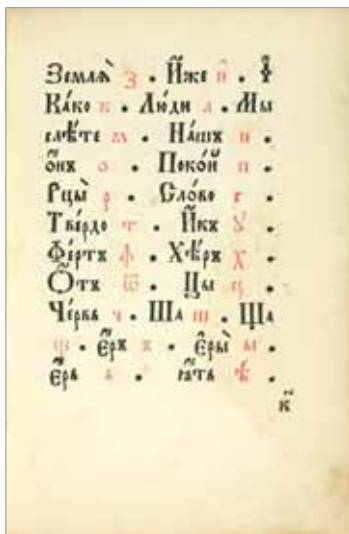 Землѧ̀ з . И҆́же и . і
Ка́кѡ к . Лю́ди л . Мы
слѣ́те м . На́шъ н .
ѻ҆́нъ о . Поко́й п .
Рцы̀ р . Сло́во с .
Тве́рдо т . И҆́къ ꙋ .
Фе́ртъ ф . Хѣ́ръ х .
Ѿтъ ѿ . Цы ц .
Че́рвь ч . Ша ш . Ща
щ . є҆́ръ ъ . є҆ры̀ ы .
є҆́рь ь . ꙗ҆́ть ѣ .
к҃